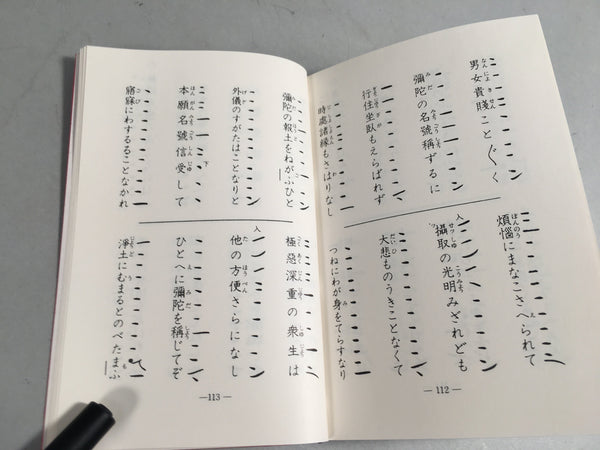 男女貴賤こと〴〵く
彌陀の名號稱ずるに
行住坐臥もえらばれず
時處諸縁もさはりなし
煩惱にまなこさへられて
入
攝取の光明みざれども
大悲ものうきことなくて
つねにわが身をてらすなり
—112—
彌陀の報土をねがふひと
外儀のすがたはことなりと
下
本願名號信受して
寤寐にわするることなかれ
極惡深重の衆生は
入
他の方便さらになし
ひとへに彌陀を稱じてぞ
淨土にむまるとのべたまふ
—113—